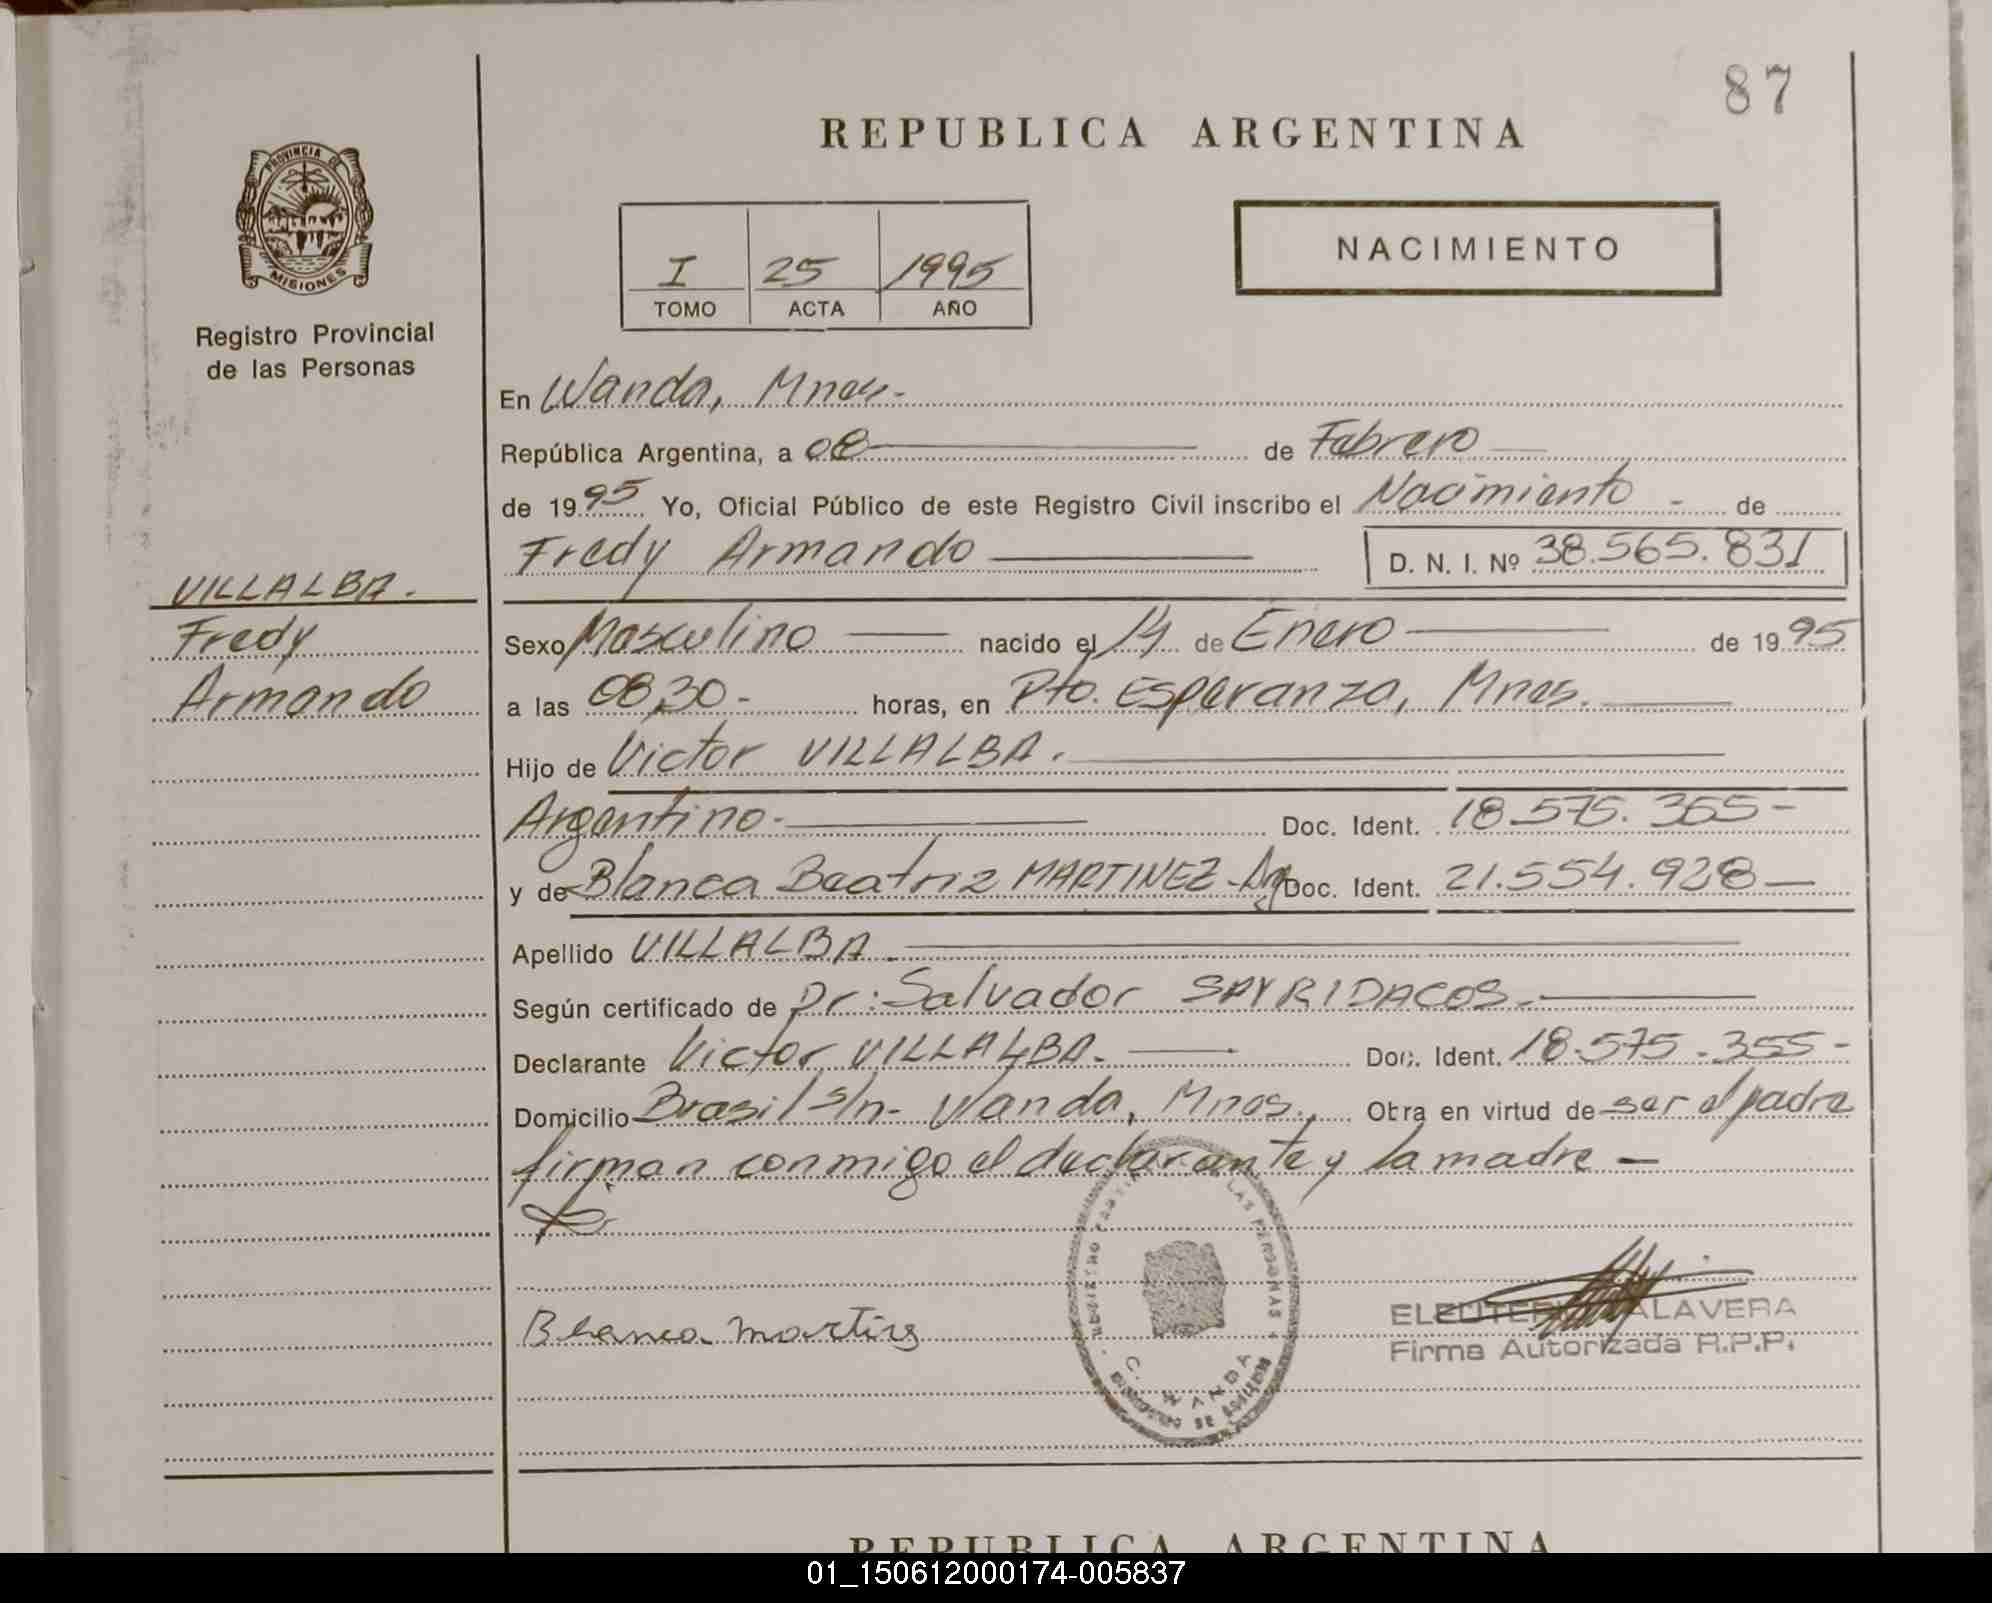 87
REPUBLICA ARGENTINA
PROVINCIA DE
MISIONES
Registro Provincial
de las Personas
I 25 1995
TOMO ACTA AÑO
NACIMIENTO
En Wanda, Mnes.-
República Argentina, a 08 de Febrero
de 1995 Yo, Oficial Público de este Registro Civil inscribo el Nacimiento - de
Fredy Armando D. N. I. Nº 38.565.831
VILLALBA.
Fredy
Armando
Sexo Masculino nacido el 14 de Enero de 1995
a las 08,30- horas, en Pto. Esperanza, Mnes.
Hijo de Victor VILLALBA.
Argentino.- Doc. Ident. 18.575.355-
y de Blanca Beatriz MARTINEZ-Arg Doc. Ident. 21.554.928-
Apellido VILLALBA.
Según certificado de Dr: Salvador SPYRIDACOS.-
Declarante Victor VILLALBA.- Doc. Ident. 18.575.355-
Domicilio Brasil s/n- Wanda, Mnes., Obra en virtud de ser el padre
firman conmigo el declarante y la madre -
LAS PERSONAS
C. WANDA
Blanca Martinez
ELEUTERIO TALAVERA
Firma Autorizada R.P.P.
REPUBLICA ARGENTINA
01_150612000174-005837